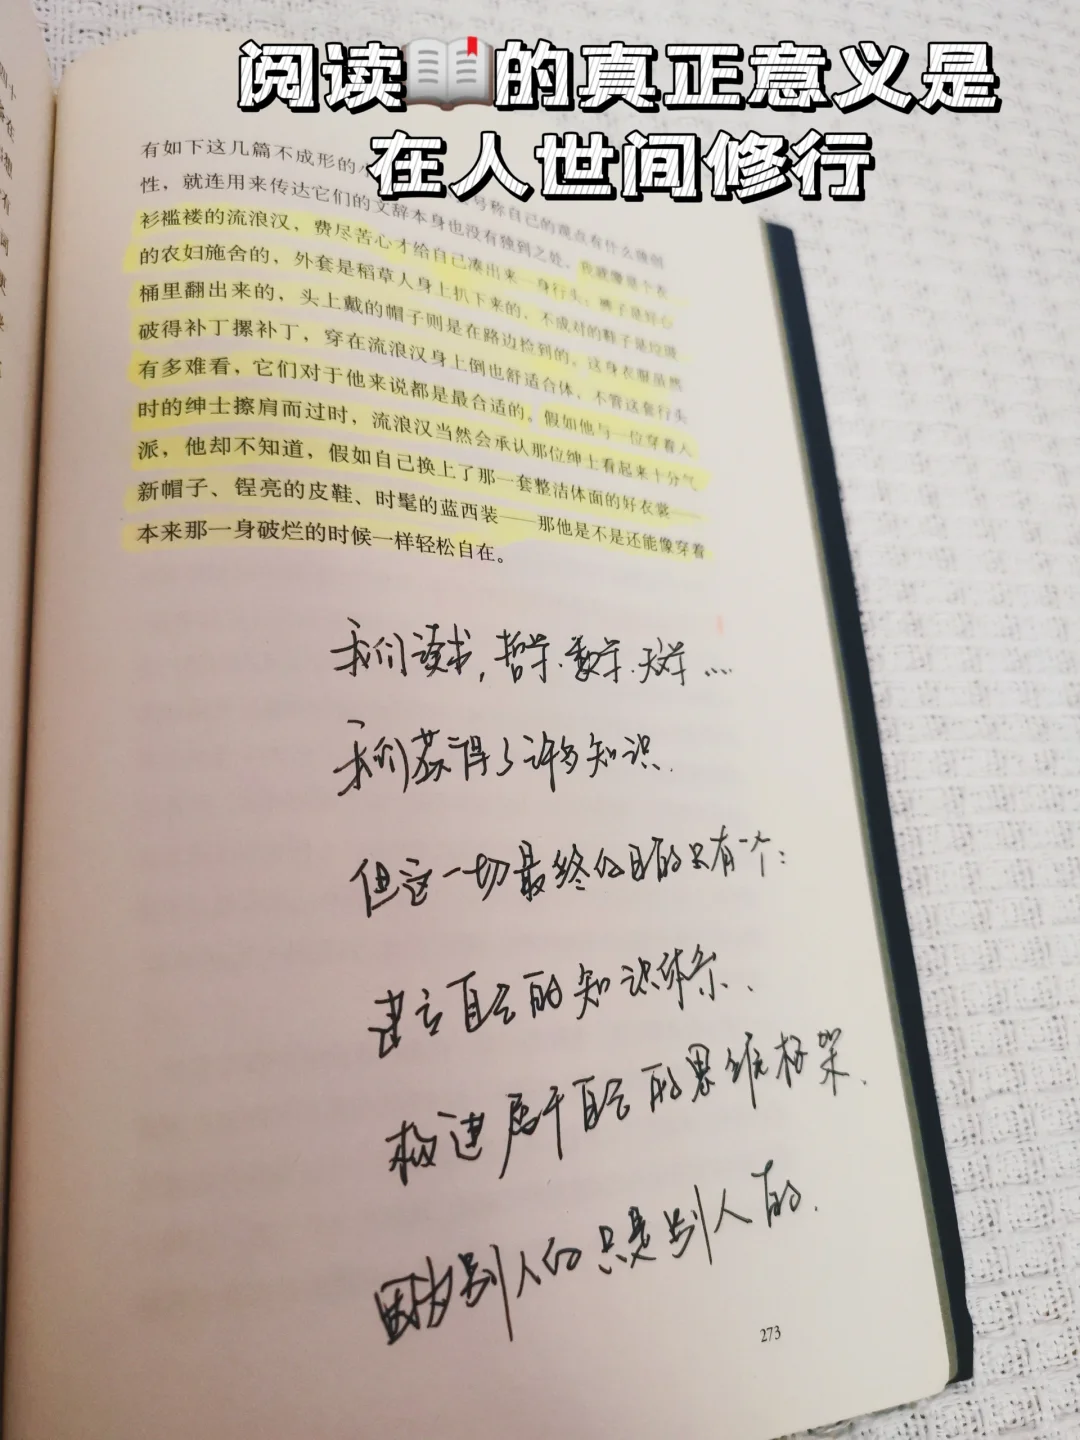 阅读📖的真正意义是
在人世间修行
有如下这几篇不成形的小 号称自己的观点有什么独创
性，就连用来传达它们的文辞本身也没有独到之处。我就像是个衣
衫褴褛的流浪汉，费尽苦心才给自己凑出来一身行头：裤子是好心
的农妇施舍的，外套是稻草人身上扒下来的，不成对的鞋子是垃圾
桶里翻出来的，头上戴的帽子则是在路边捡到的。这身衣服虽然
破得补丁摞补丁，穿在流浪汉身上倒也舒适合体，不管这套行头
有多难看，它们对于他来说都是最合适的。假如他与一位穿着入
时的绅士擦肩而过时，流浪汉当然会承认那位绅士看起来十分气
派，他却不知道，假如自己换上了那一套整洁体面的好衣裳——
新帽子、锃亮的皮鞋、时髦的蓝西装——那他是不是还能像穿着
本来那一身破烂的时候一样轻松自在。
我们读书，哲学.数学.天文学…
我们获得了许多知识.
但这一切最终的目的只有一个：
建立自己的知识体系、
构建属于自己的思维框架.
因为别人的只是别人的.
273